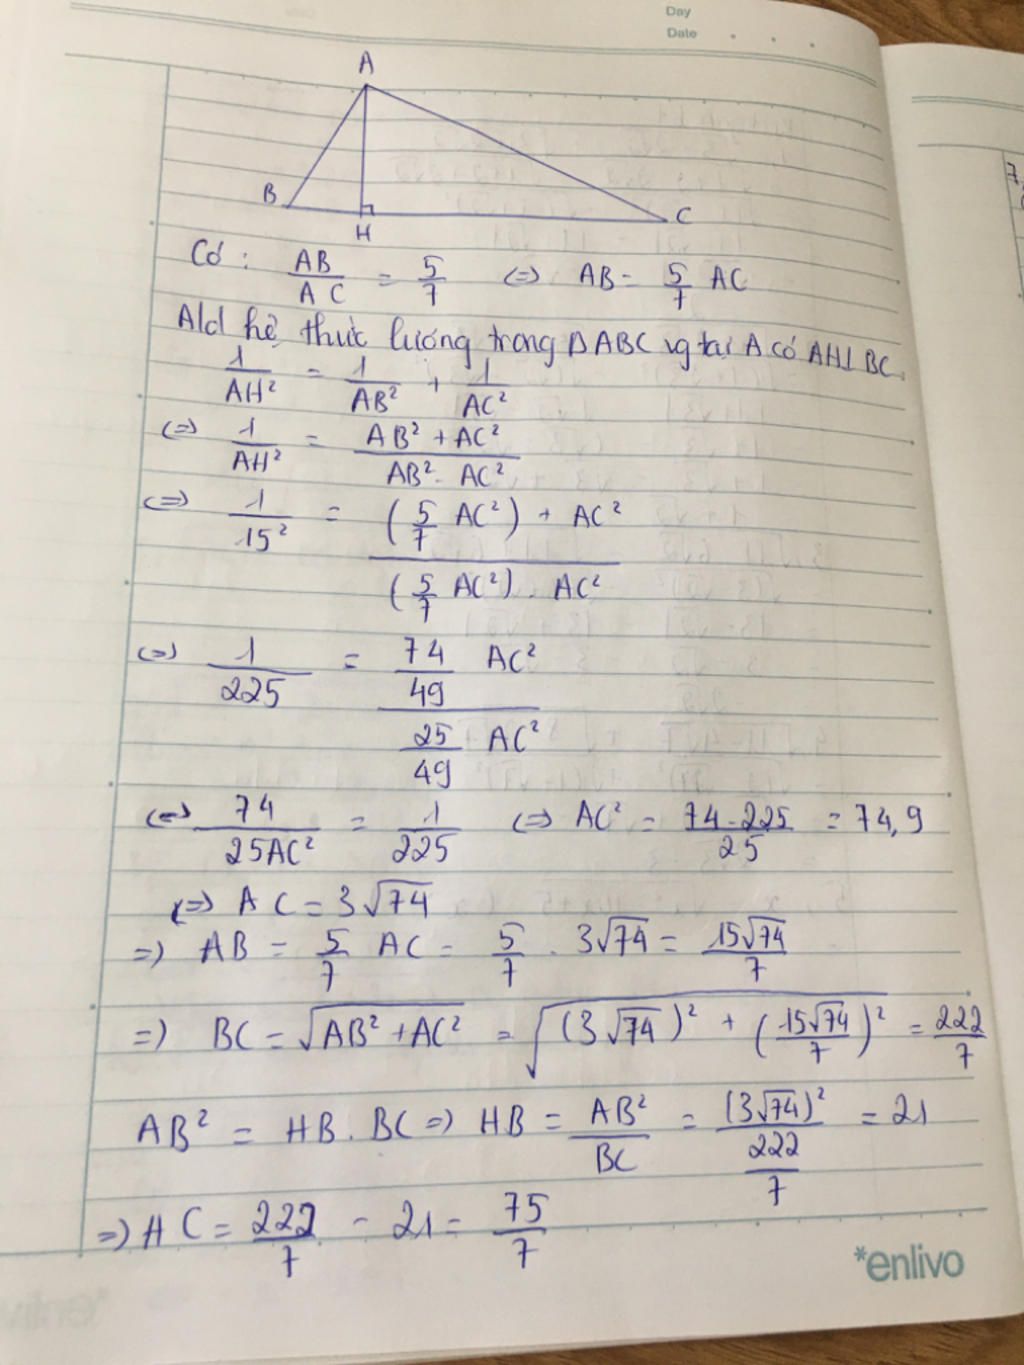 Day
Date
A
B
H
C
7,
Có : AB/AC = 5/7 (=) AB = 5/7 AC
Ald hệ thức lượng trong ΔABC vg tại A có AH⊥BC.
1/AH² = 1/AB² + 1/AC²
(=) 1/AH² = (AB² + AC²)/(AB² . AC²)
(=) 1/15² = ((5/7 AC²) + AC²)/((5/7 AC²) . AC²)
(=) 1/225 = (74/49 AC²)/(25/49 AC²)
(=) 74/25AC² = 1/225 (=) AC² = 74.225/25 = 74,9
(=) AC = 3√74
=) AB = 5/7 AC = 5/7 . 3√74 = 15√74/7
=) BC = √(AB² + AC²) = √((3√74)² + (15√74/7)²) = 222/7
AB² = HB . BC =) HB = AB²/BC = (3√74)²/(222/7) = 21
=) HC = 222/7 - 21 = 75/7
*enlivo